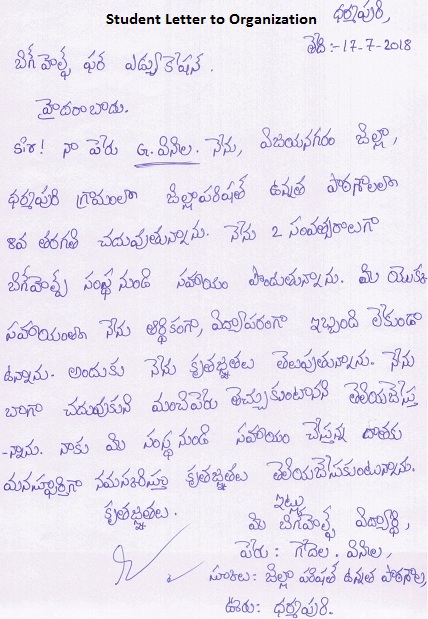 Student Letter to Organization
ధర్మపురి,
తేది:-17-7-2018
బిగ్ హెల్ప్ ఫర్ ఎడ్యుకేషన్.
హైదరాబాదు.
సార్! నా పేరు G. వినీల. నేను, విజయనగరం జిల్లా,
ధర్మపురి గ్రామంలో జిల్లాపరిషత్ ఉన్నత పాఠశాలలో
8వ తరగతి చదువుతున్నాను. నేను 2 సంవత్సరాలుగా
బిగ్ హెల్ప్ సంస్థ నుండి సహాయం పొందుతున్నాను. మీ యొక్క
సహాయంతో నేను ఆర్థికంగా, విద్యాపరంగా ఇబ్బంది లేకుండా
ఉన్నాను. అందుకు నేను కృతజ్ఞతలు తెలుపుతున్నాను. నేను
బాగా చదువుకుని మంచిపేరు తెచ్చుకుంటానని తెలియచేస్తు
-న్నాను. నాకు మీ సంస్థ నుండి సహాయం చేస్తున్న దాతకు
మనస్ఫూర్తిగా నమస్కరిస్తూ కృతజ్ఞతలు తెలియచేసుకుంటున్నాను.
కృతజ్ఞతలు.
ఇట్లు
మీ బిగ్ హెల్ప్ విద్యార్థి,
పేరు: గొదెల. వినీల,
స్కూలు: జిల్లా పరిషత్ ఉన్నత పాఠశాల,
ఊరు: ధర్మపురి.